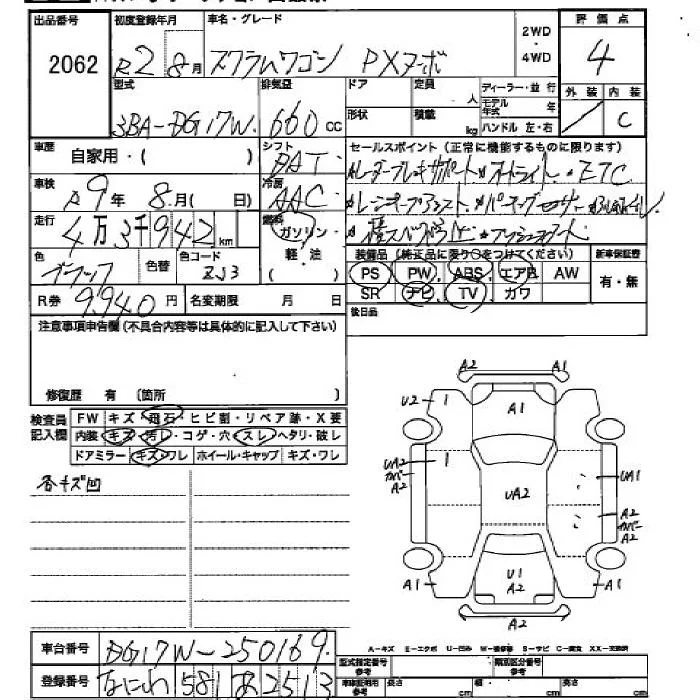 出品番号 初度登録年月 車名・グレード 2WD ・ 4WD 評価点
2062 R2 8月 スクラムワゴン PXターボ 4
型式 排気量 ドア 定員 人 ディーラー・並行 外装 内装
3BA-DG17W 660 cc 形状 積載 kg モデル年式 年 ハンドル 左・右 C
車歴 自家用・( ) シフト DAT セールスポイント(正常に機能するものに限ります)
車検 R9年 8月( 日) 冷房 AAC レーダーブレーキサポート オートライト ETC
走行 4万3千942km 燃料 ガソリン・軽・油( ) レーンキープアシスト パーキングセンサー
色 ブラック 色替 色コード ZJ3 プッシュスタート
装備品(純正品に限り○をつけてください) 新車保証書
PS PW ABS エアB AW 有・無
R券 9,940円 名変期限 月 日 SR ナビ TV カワ
注意事項申告欄(不具合内容等は具体的に記入して下さい) 後日品
修復歴 有 〔箇所 〕
検査員記入欄 FW キズ・飛石・ヒビ割・リペア跡・X要
内装 キズ・汚レ・コゲ・穴・スレ・ヘタリ・破レ
ドアミラー キズ・ワレ ホイール・キャップ キズ・ワレ
各キズ凹
A2 A1
U2 1 A1
1
UA2 カバーA2 UA2 UA1
A2 カバーA2
A1 U1 A2 A1
A2
A-キズ E-エクボ U-凹み W-補修跡 S-サビ C-腐食 XX-交換済
車台番号 DG17W-250169
型式指定番号 参考 類別区分番号 参考
登録番号 なにわ 581 あ 2513
車検証記載 参考 長さ cm 幅 cm 高さ cm